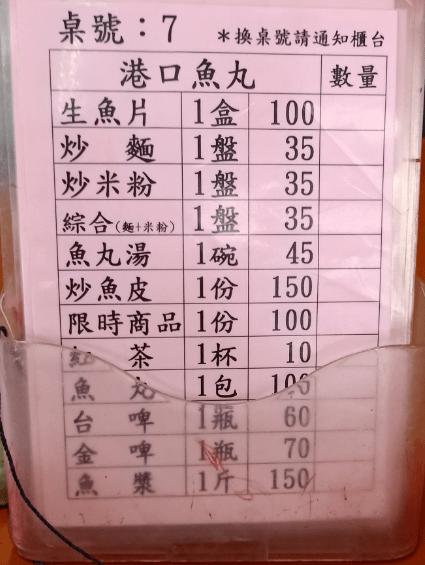 桌號：7 *換桌號請通知櫃台
港口魚丸 數量
生魚片 1盒 100
炒麵 1盤 35
炒米粉 1盤 35
綜合(麵+米粉) 1盤 35
魚丸湯 1碗 45
炒魚皮 1份 150
限時商品 1份 100
紅茶 1杯 10
魚丸 1包 100
台啤 1瓶 60
金啤 1瓶 70
魚漿 1斤 150